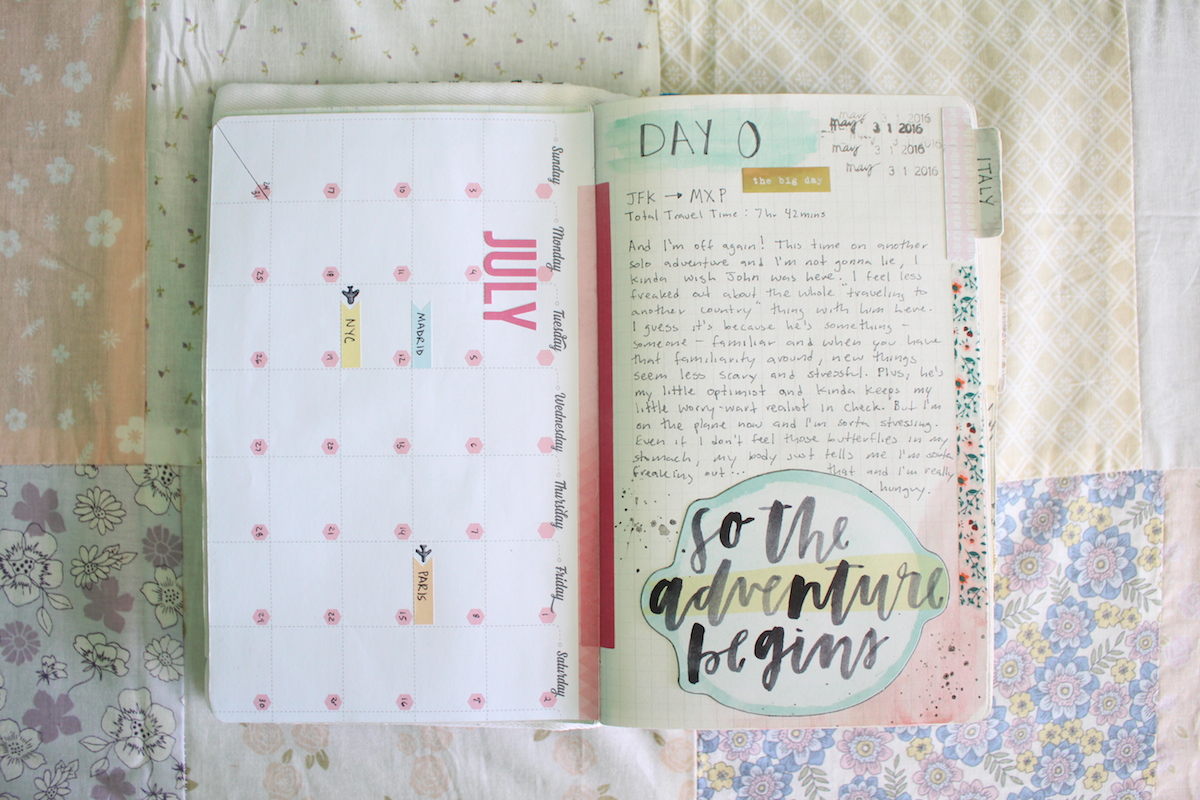 JULY
Sunday Monday Tuesday Wednesday Thursday Friday Saturday
1 2
3 4 5 6 7 8 9
10 11 12 13 14 15 16
MADRID PARIS
17 18 19 20 21 22 23
NYC
24/31 25 26 27 28 29 30
DAY 0
may 3 1 2016
may 3 1 2016
may 3 1 2016
may 3 1 2016
the big day
ITALY
JFK → MXP
Total Travel Time: 7hr 42mins
And I'm off again! This time on another
solo adventure and I'm not gonna lie, I
kinda wish John was here. I feel less
freaked out about the whole "traveling to
another country" thing with him here.
I guess it's because he's something -
someone - familiar and when you have
that familiarity around, new things
seem less scary and stressful. Plus, he's
my little optimist and kinda keeps my
little worry-wart realist in check. But I'm
on the plane now and I'm sorta stressing.
Even if I don't feel those butterflies in my
stomach, my body just tells me I'm sorta
freaking out... that and I'm really
hungry.
so the
adventure
begins